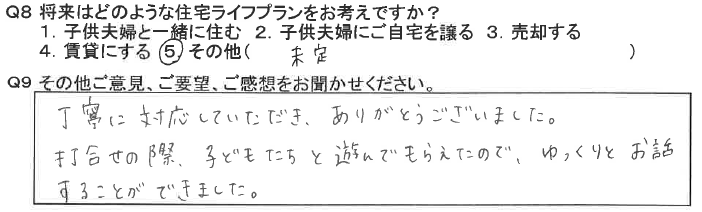 Q8 将来はどのような住宅ライフプランをお考えですか？
1. 子供夫婦と一緒に住む 2. 子供夫婦にご自宅を譲る 3. 売却する
4. 賃貸にする 5. その他( 未定 )
Q9 その他ご意見、ご要望、ご感想をお聞かせください。
丁寧に対応していただき、ありがとうございました。
打合せの際、子どもたちと遊んでもらえたので、ゆっくりとお話
することができました。